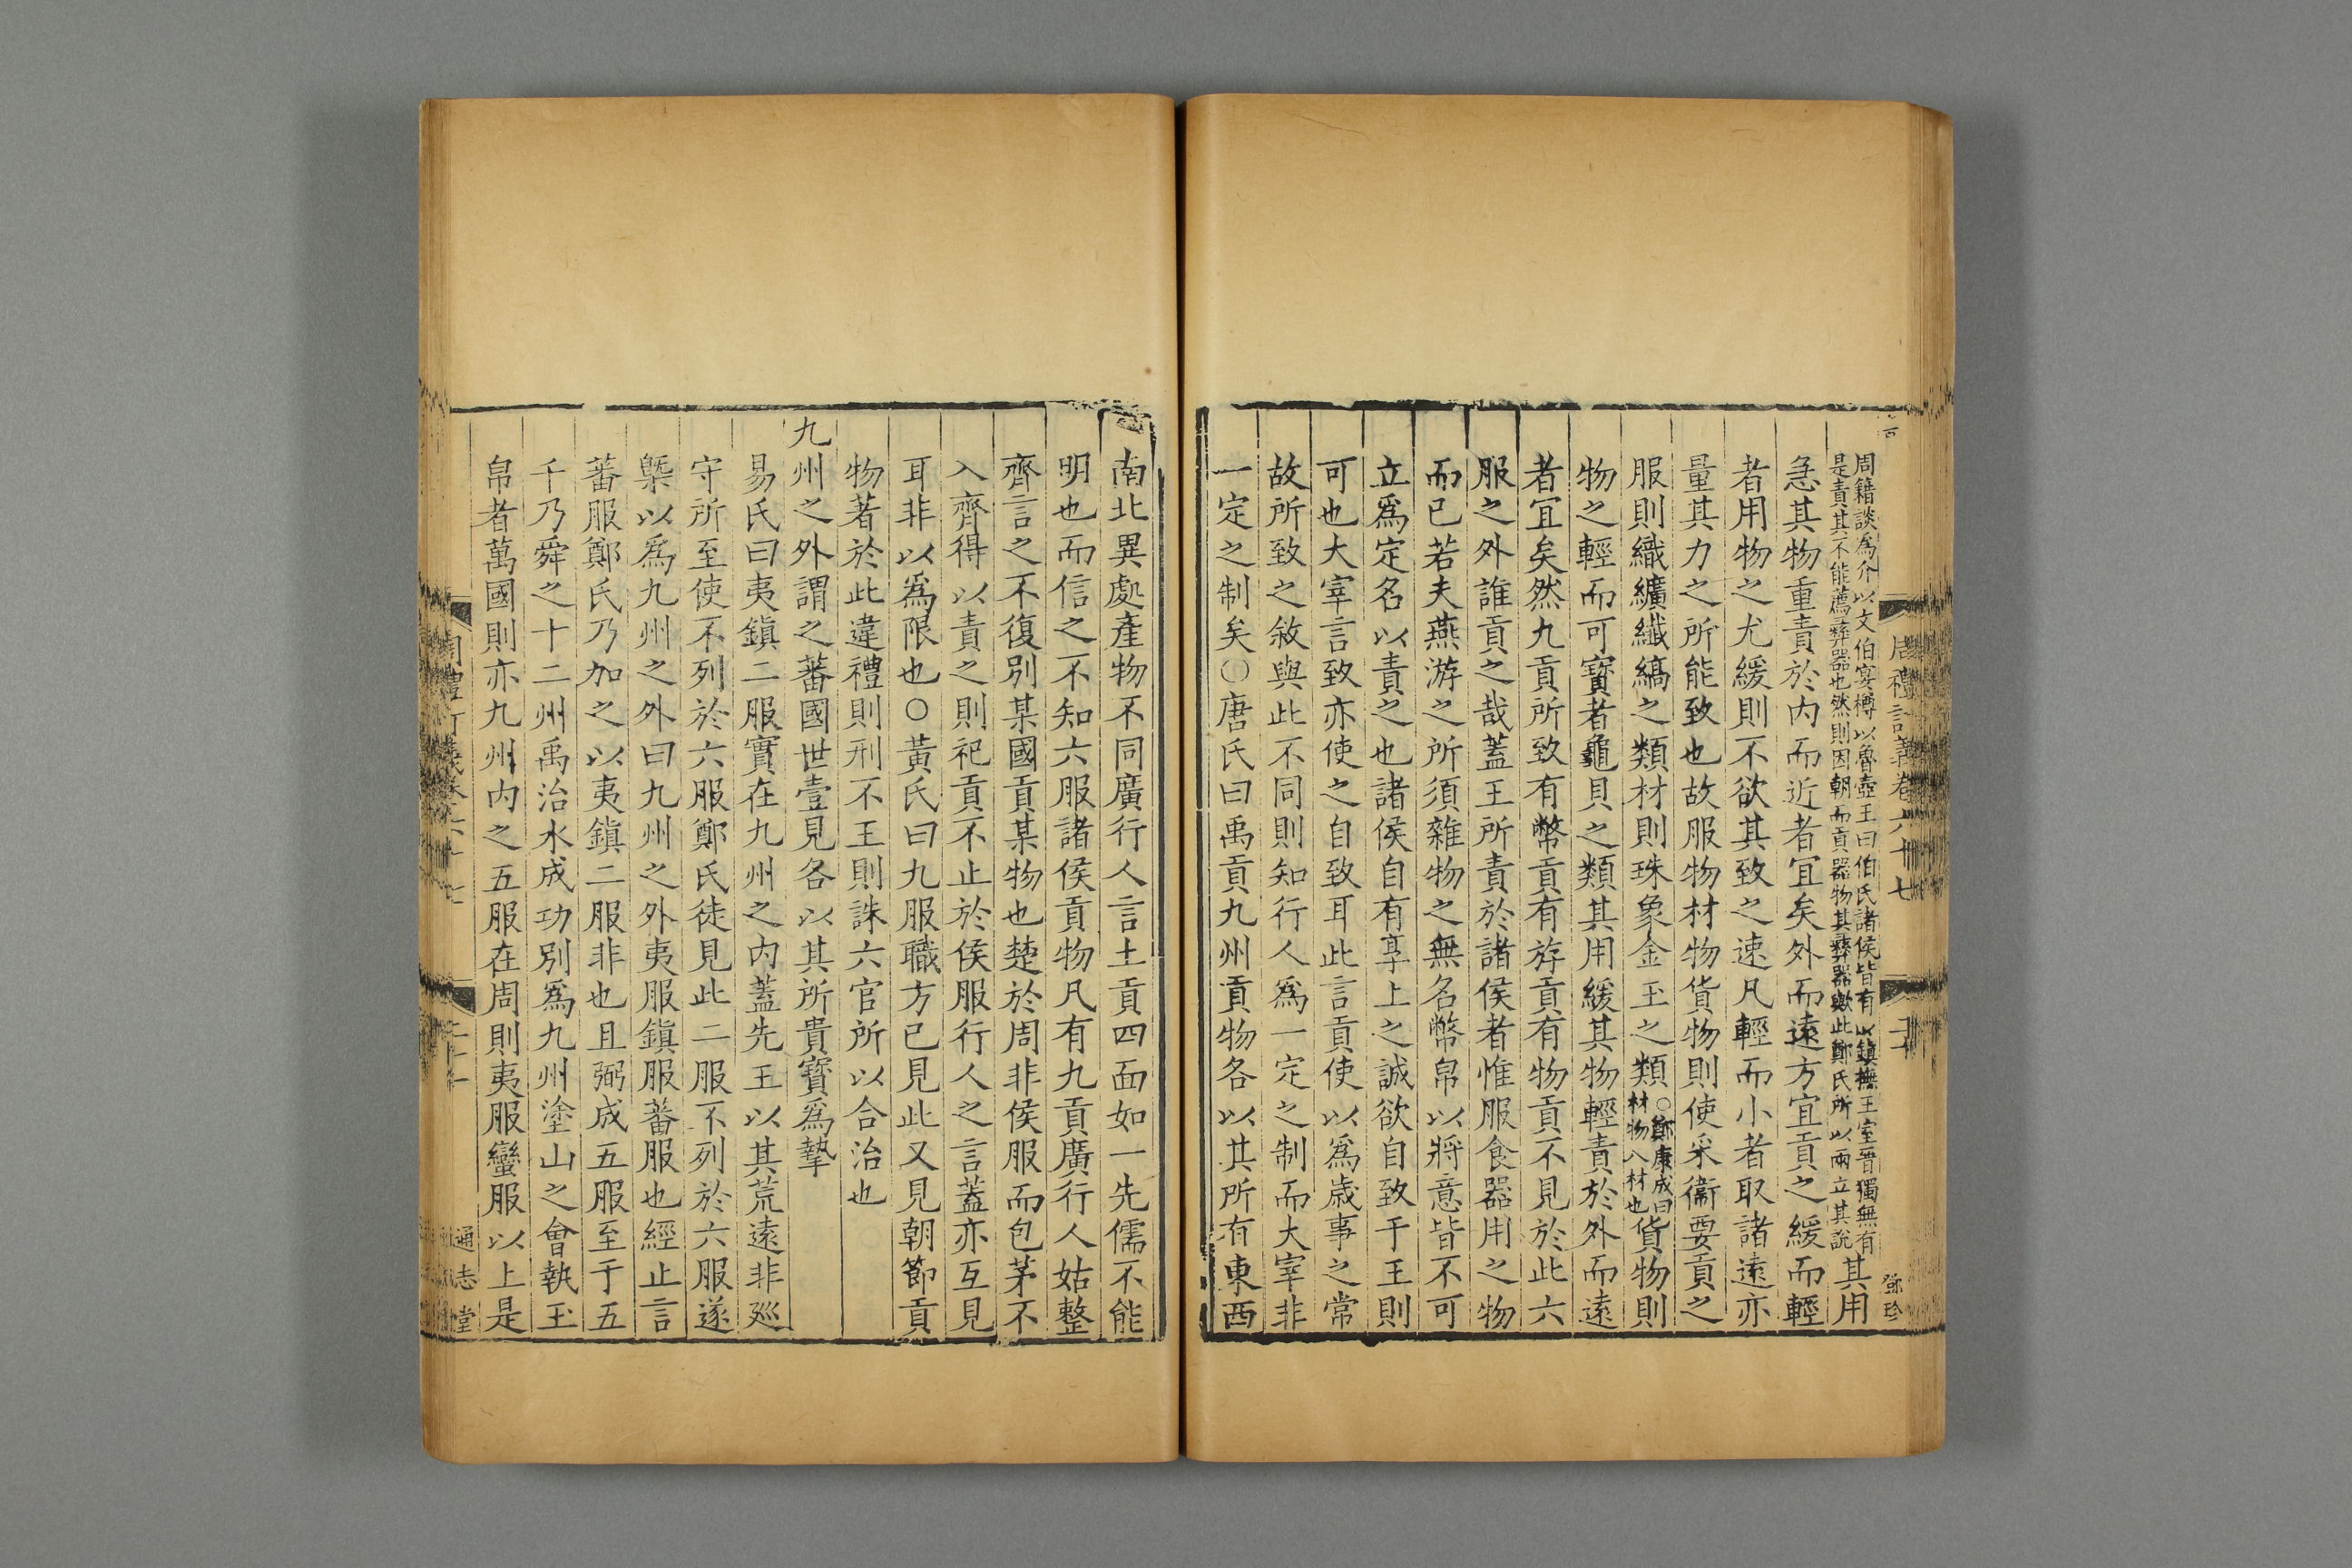 周籍談爲介以文伯宴樽以魯壺王曰伯氏諸侯皆有以鎮撫王室晉獨無有
是責其不能薦彝器也然則因朝而貢器物其彝器歟此鄭氏所以兩立其說
其用
急其物重責於內而近者宜矣外而遠方宜貢之緩而輕
者用物之尤緩則不欲其致之速凡輕而小者取諸遠亦
量其力之所能致也故服物材物貨物則使采衞要貢之
服則織纊纖縞之類材則珠象金玉之類
○鄭康成曰
材物八材也
貨物則
物之輕而可寶者龜貝之類其用緩其物輕責於外而遠
者宜矣然九貢所致有幣貢有斿貢有物貢不見於此六
服之外誰貢之哉蓋王所責於諸侯者惟服食器用之物
而已若夫燕游之所須雜物之無名幣帛以將意皆不可
立爲定名以責之也諸侯自有享上之誠欲自致于王則
可也大宰言致亦使之自致耳此言貢使以爲歲事之常
故所致之敘與此不同則知行人爲一定之制而大宰非
一定之制矣○唐氏曰禹貢九州貢物各以其所有東西
南北異處產物不同廣行人言土貢四面如一先儒不能
明也而信之不知六服諸侯貢物凡有九貢廣行人姑整
齊言之不復別某國貢某物也楚於周非侯服而包茅不
入齊得以責之則祀貢不止於侯服行人之言蓋亦互見
耳非以爲限也○黃氏曰九服職方已見此又見朝節貢
物著於此違禮則刑不王則誅六官所以合治也
九州之外謂之蕃國世壹見各以其所貴寶爲摯
易氏曰夷鎭二服實在九州之內蓋先王以其荒遠非廵
守所至使不列於六服鄭氏徒見此二服不列於六服遂
槩以爲九州之外曰九州之外夷服鎭服蕃服也經止言
蕃服鄭氏乃加之以夷鎭二服非也且弼成五服至于五
千乃舜之十二州禹治水成功別爲九州塗山之會執玉
帛者萬國則亦九州內之五服在周則夷服蠻服以上是
周禮訂義卷六十七
通志堂